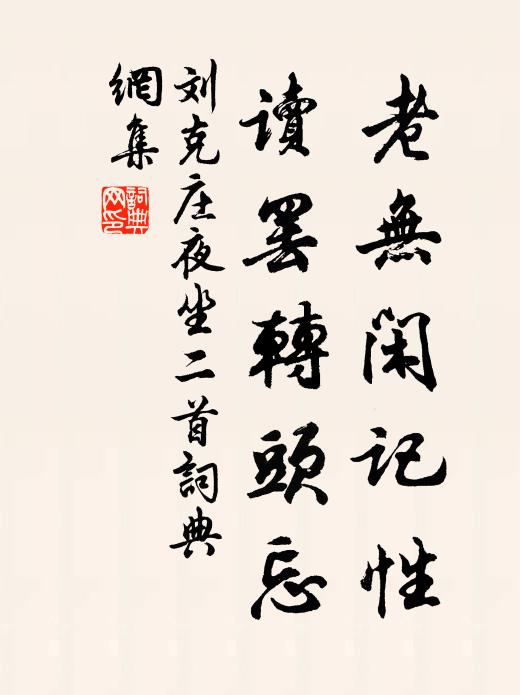 老無閑記性
讀罢轉頭忘
刘克庄夜坐二首詞典
網集
詞典
网印